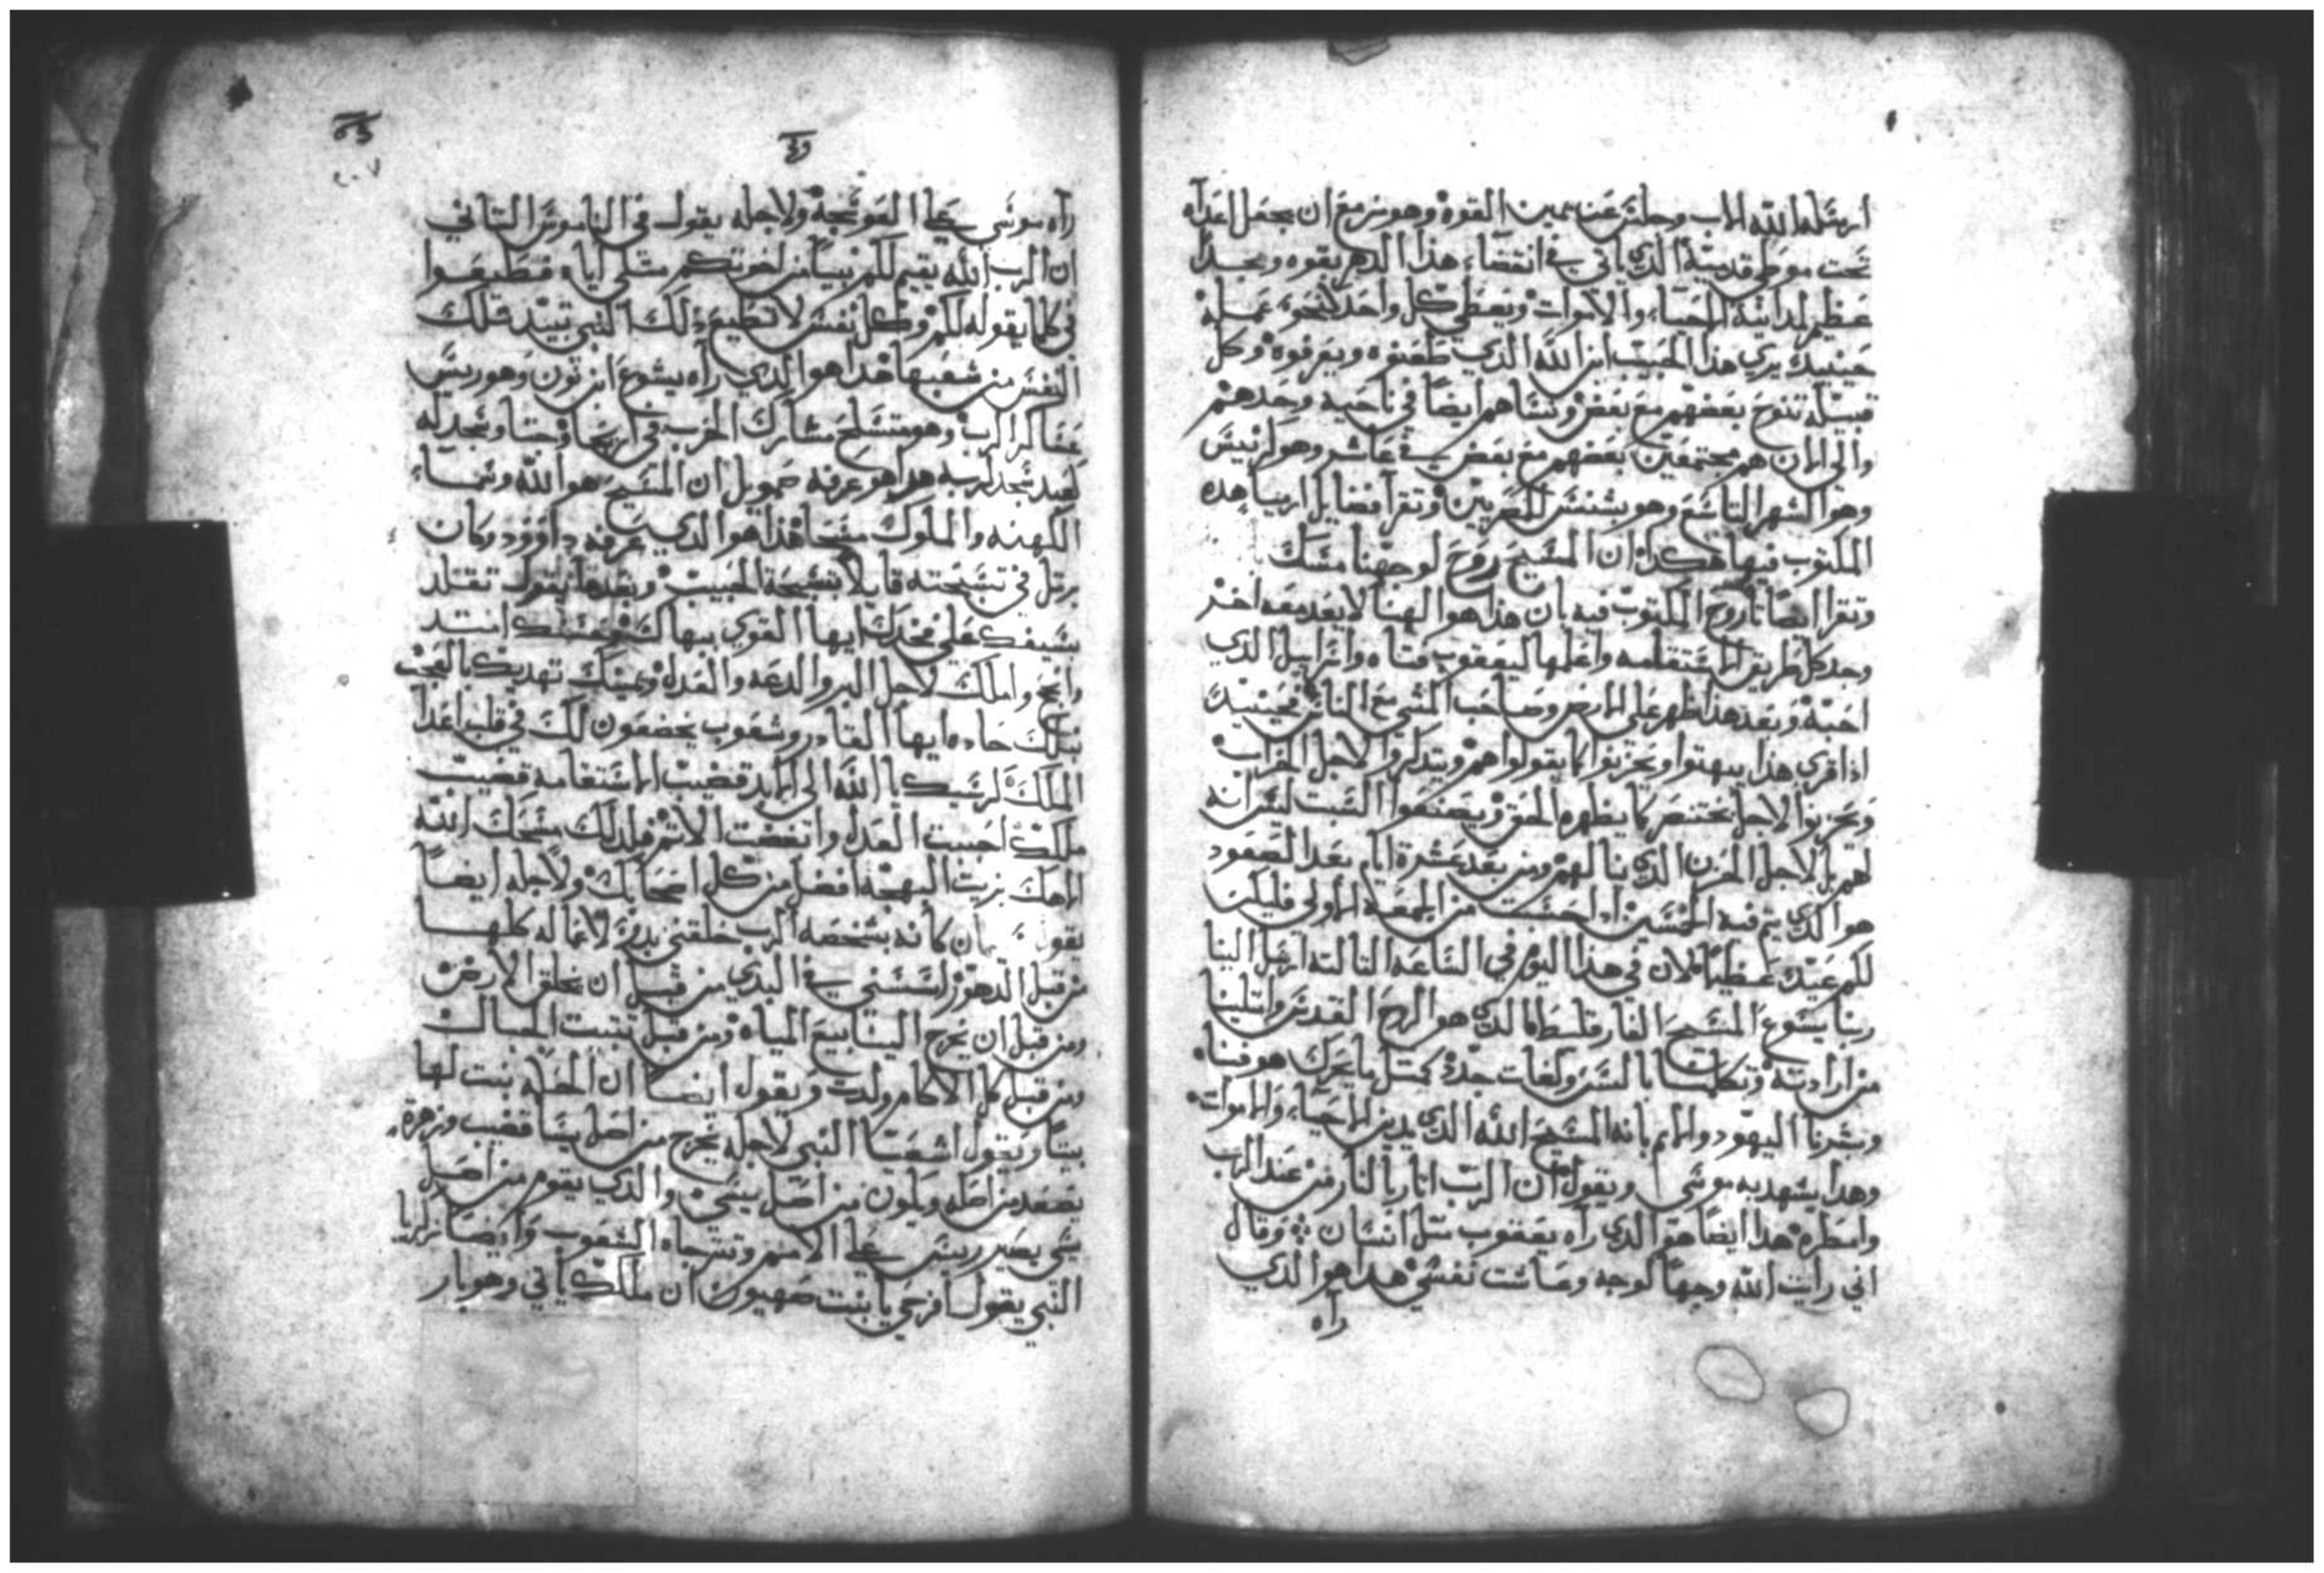 ارسله الله الاب وجلس عن يمين القوة وهو مزمع ان يجعل اعداه
تحت موطى قدميه الذي ياتي في انقضاء هذا الدهر بقوه ومجدا
عظيم لمداينة الاحياء والاموات ويعطي كل واحد كنحو عمله
حينيد يري هذا الحبيب ابن الله الذي طعنوه ويعرفوه وكل
قبيله تنوح بعضهم مع بعض ونساهم ايضا في ناحيه وحدهم
والى الان هم مجتمعين بعضهم مع بعض في عاشر وهو
وهو الشهر التاسع وهو بشنس للمصريين وتقرا فضايل ارميا هده
المكتوب فيها هكدا ان المسيح روح لوجهنا مسك
وتقرا ايضا باروخ المكتوب فيه بان هذا هو الهنا لا يعد معه اخر
وجد كل طريق الاستقامه واعلمها ليعقوب فتاه واسراييل الذي
احبه وبعد هذا ظهر على الارض وصاحب المشي مع الناس فحينيد
ادا قري هذا يبهتوا ويحزنوا كما يقولوا هم ويتدكروا لاجل الخراب
ويحزنوا لاجل بختنصر كما يظهره الحق ويصنعوا السبت ليس انه
لهم بل لاجل الحزن الذي نالهم ومن بعد عشرة ايام بعد الصعود
هو الدي يتم فيه الخمسين ادا حسبت من الجمعه الاولى فليكن
لكم عيدا عظيما لان في هذا اليوم في الساعه التالته ارسل الينا
ربنا يسوع المسيح الفارقليط الدي هو الروح القدس وامتلينا
من ارادته وتكلمنا بالسن ولغات جدد كمتل ما يحرك هو فينا
وبشرنا اليهود والامم بانه المسيح الله الذي يدين الاحياء والاموات
وهدا يشهد به موسى ويقول ان الرب انار بالنار من عند الرب
وامطره هدا ايضا هو الذي راه يعقوب متل انسان وقال
اني رايت الله وجها لوجه وعاشت نفسي هدا هو الذي
راه
راه موسى على العوسجه ولاجله يقول في الناموس التاني
ان الرب الله يقيم لكم نبيا من اخوتكم متلي اياه فتطيعوا
في كلما يقوله لكم وكل نفس لا تطيع دلك النبي تبيد تلك
النفس من شعبها هدا هو الدي راه يشوع ابن نون وهو رييس
عساكر الرب وهو متسلح مشارك الحرب في اريحا وجتا وسجد له
كعبد سجد لربه هدا هو عرفه صمويل ان المسيح هو الله وسما
الكهنه والملوك مسحا هذا هو الدي عرفه داوود وكان
يرتل في تسبحته قايلا تسبحة الحبيب وبعدها يقول تقلد
سيفك على فخدك ايها القوي ببهاك وحسنك استد
وانجح واملك لاجل البر والدعه والعدل ويمينك تهديك بالعجب
نبلك حاده ايها القادر وشعوب يخضعون لك في قلب اعدا
الملك كرسيك يا الله الى الابد قضيب الاستقامه قضيب
ملكك احببت العدل وابغضت الاتم فلدلك مسحك الله
الاهك بزيت البهجه افضل من كل اصحابك ولاجله ايضا
يقول كانه بشخصه الرب خلقني بدو لاعماله كلها
من قبل الدهور اسسني في البدي من قبل ان يخلق الارض
ومن قبل ان يخرج الينابيع المياه ومن قبل تبتت الجبال
ومن قبل كل الاكام ولدت ويقول ايضا ان الحكمه بنت لها
بيتا ويقول اشعيا النبي لاجله يخرج من اصل يسا قضيب وزهرة
يصعد من اصله ويكون من اصل يسي والدي يقوم من اصل
يسي يصير رييس على الامم وتترجاه الشعوب وايضا زكريا
النبي يقول افرحي يا بنت صهيون ان ملكك ياتي وهو بار